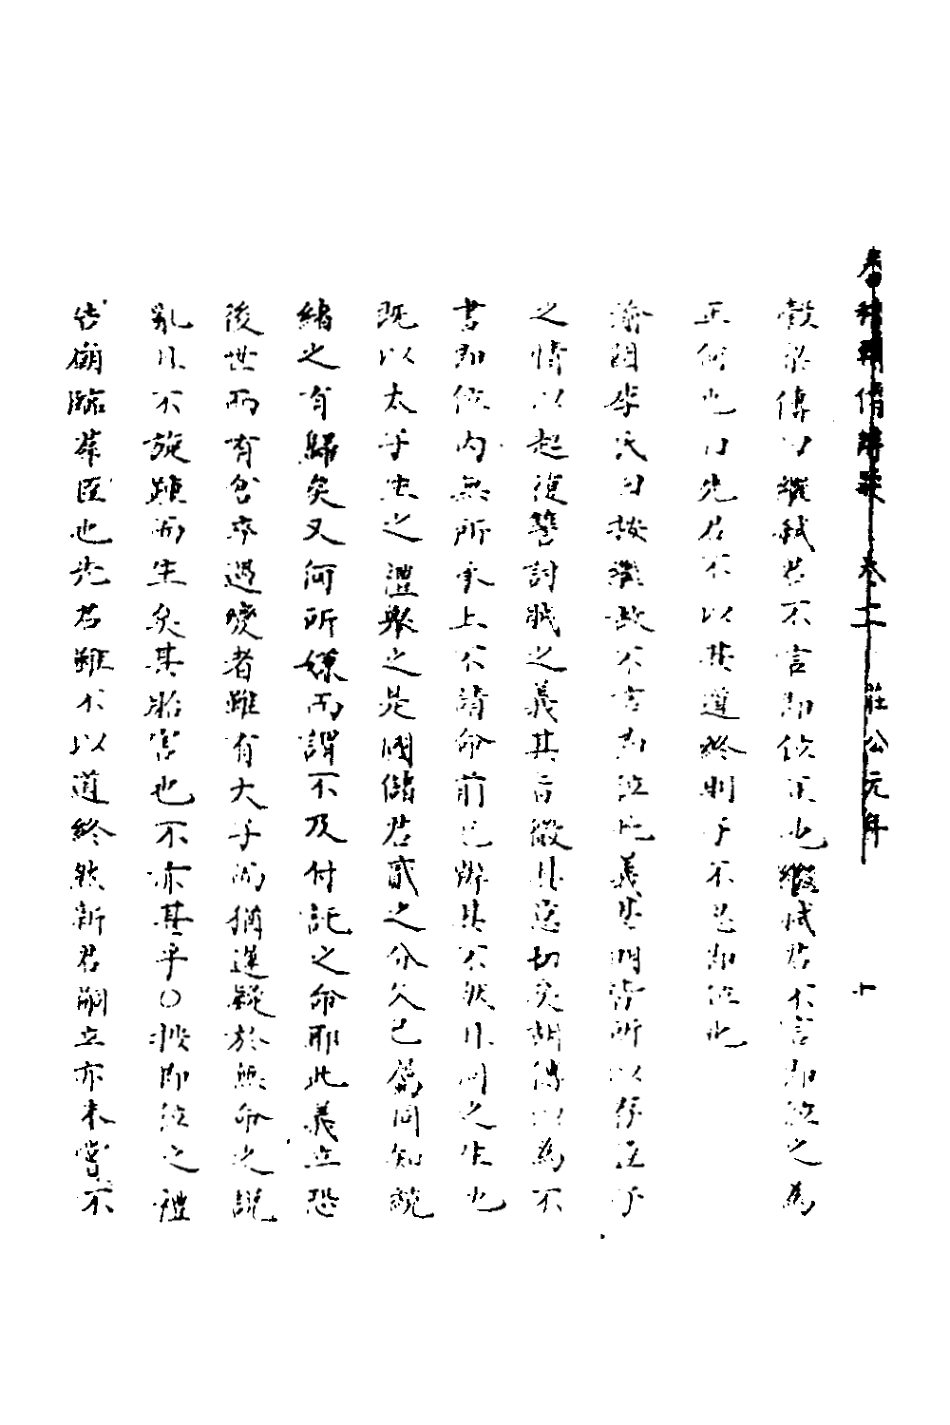 春秋輯傳辨疑 卷二十 莊公元年 十
穀梁傳曰繼弒君不言即位正也繼弒君不言即位之為
正何也曰先君不以其道終則子不忍即位也
渝關李氏曰按繼故不言即位此義甚明皆所以存臣子
之情以起復讐討賊之義其旨微其意切矣胡傳以為不
書即位內無所承上不請命前已辨其不然且同之生也
既以太子生之禮舉之是國儲君貳之分久已屬同知統
緒之有歸矣又何所嫌而謂不及付託之命耶此義立恐
後世而有倉卒遇變者雖有太子而猶進疑於無命之說
亂且不旋踵而生矣其貽害也不亦甚乎○按即位之禮
告廟臨羣臣也先君雖不以道終然新君嗣立亦未嘗不